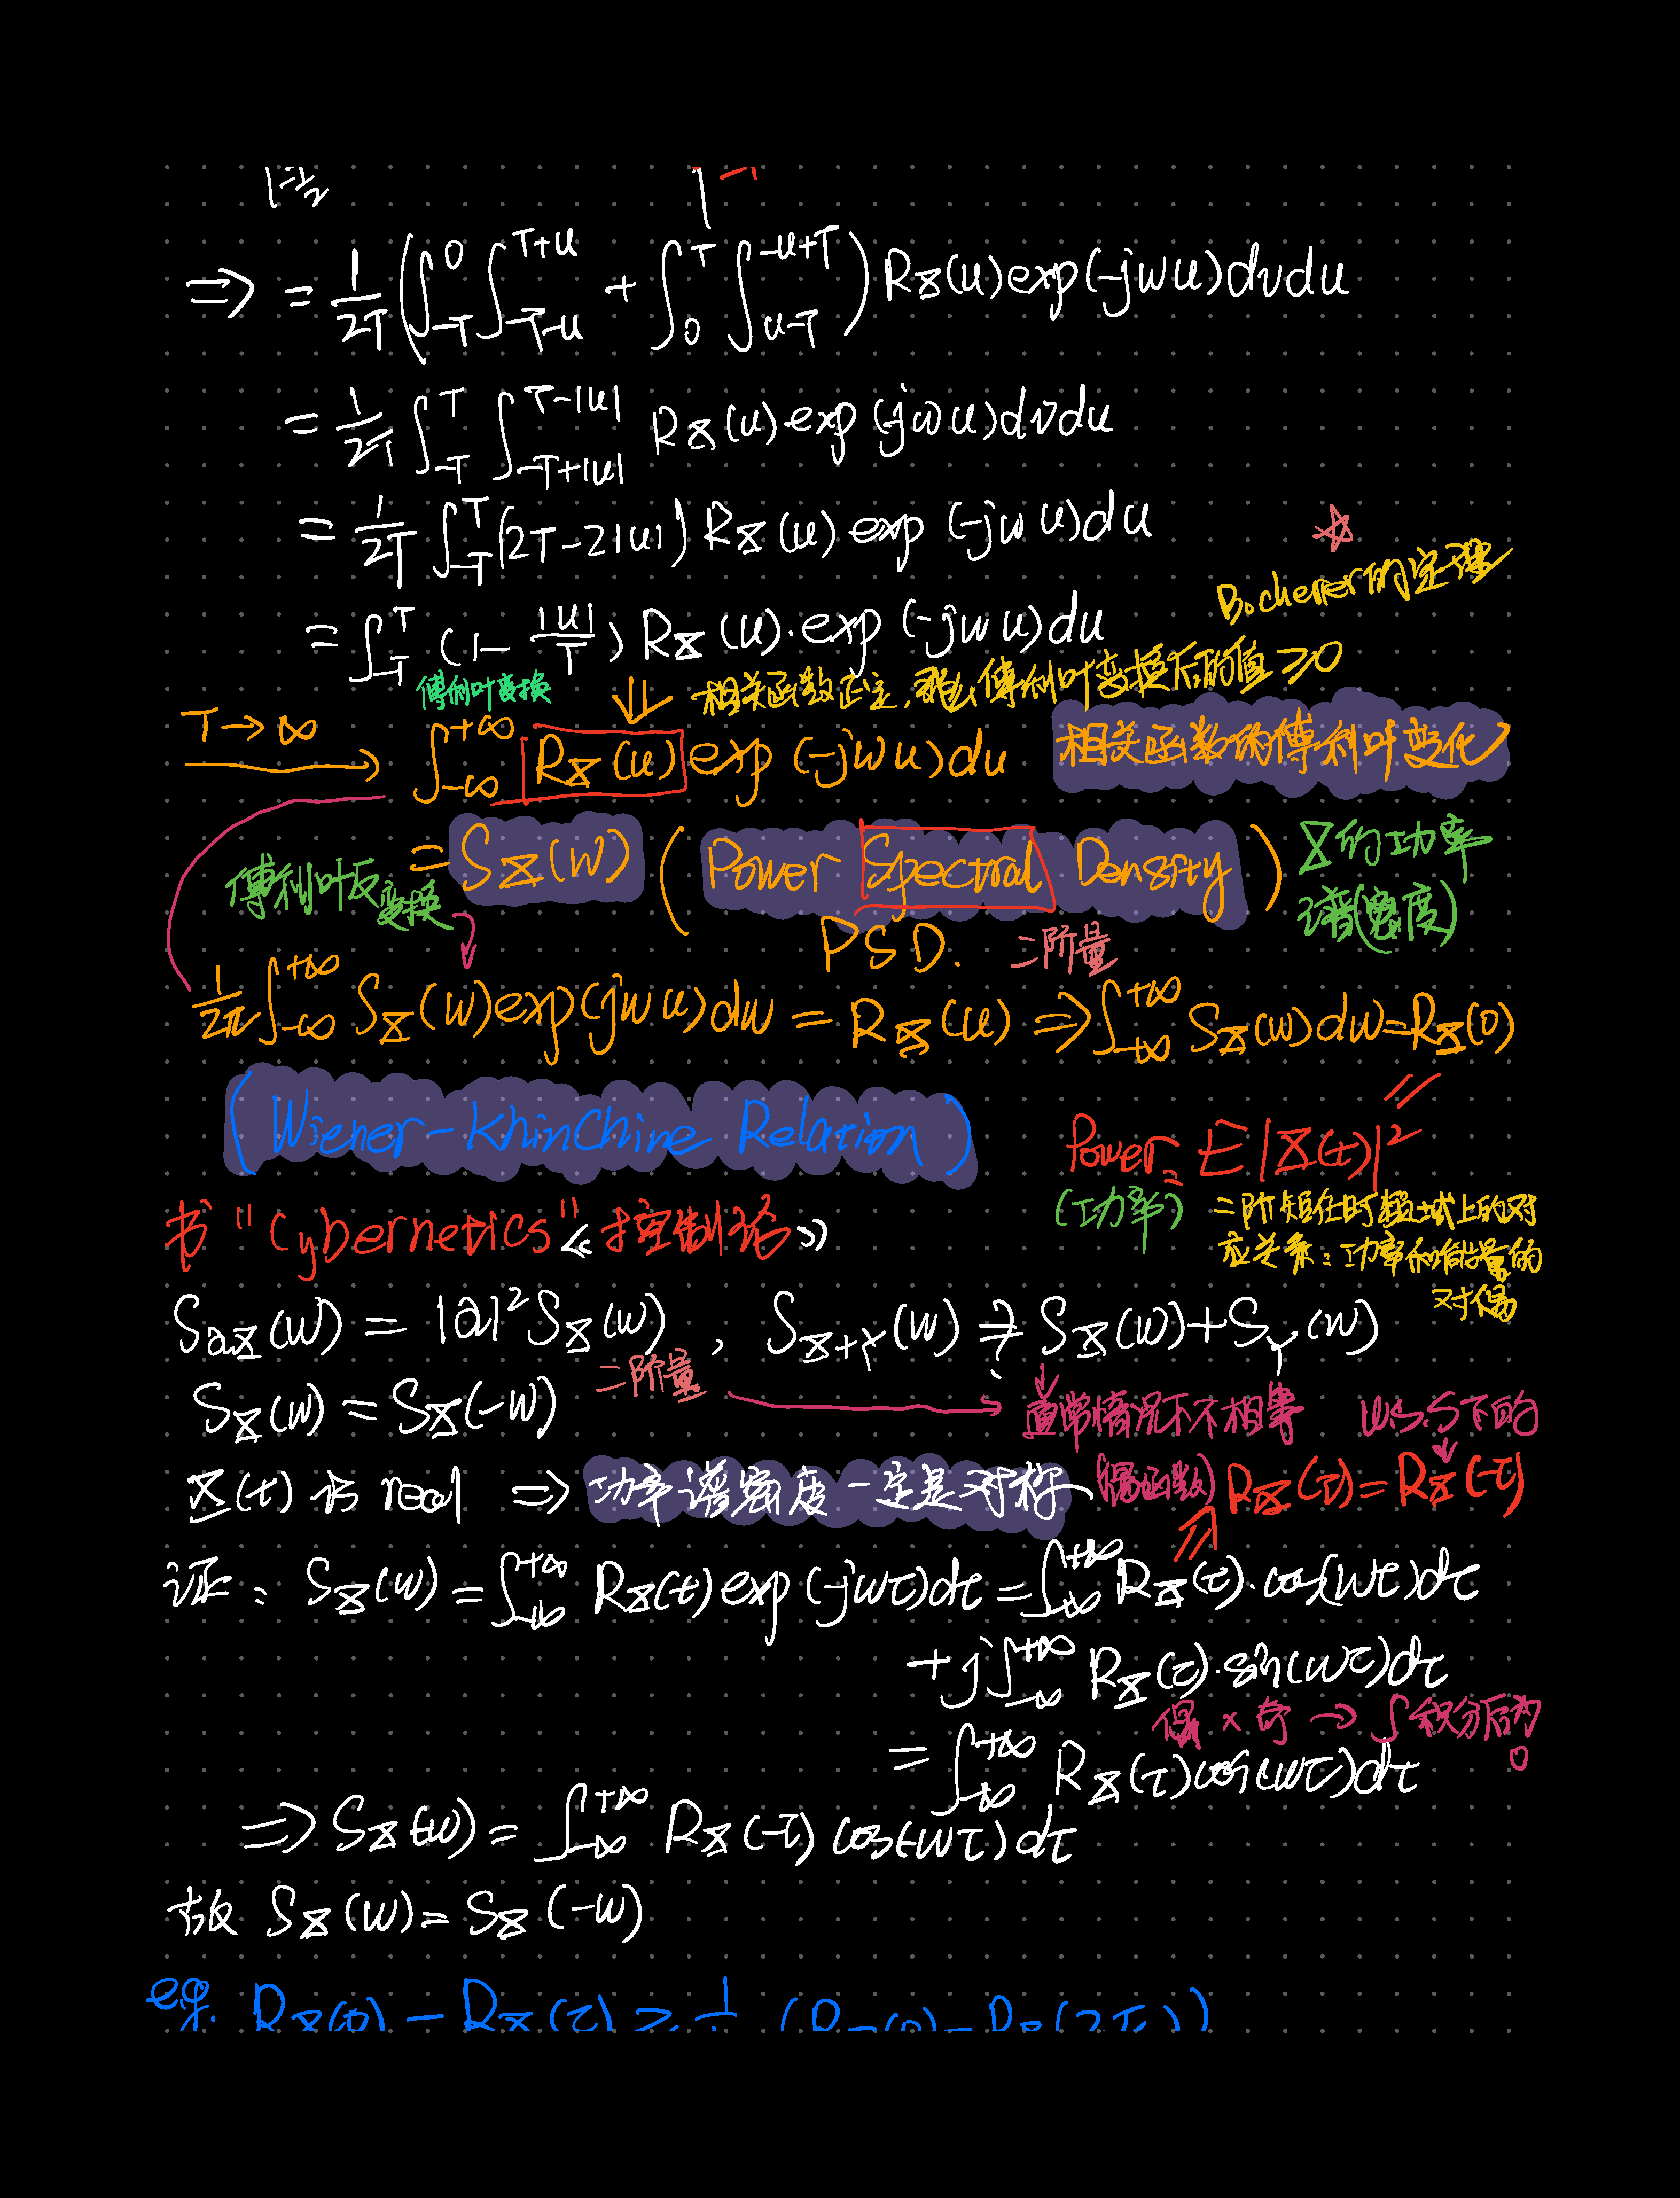 ⇒ = 1/2T (∫_{-T}^{0} ∫_{-T-u}^{T+u} + ∫_{0}^{T} ∫_{u-T}^{-u+T}) R_X(u) exp(-jwu) dv du
= 1/2T ∫_{-T}^{T} ∫_{-T+|u|}^{T-|u|} R_X(u) exp(-jwu) dv du
= 1/2T ∫_{-T}^{T} (2T-2|u|) R_X(u) exp(-jwu) du
Bochener的定理
= ∫_{-T}^{T} (1- |u|/T) R_X(u)·exp(-jwu) du
傅利叶变换
相关函数正定,那么傅利叶变换后的值≥0
T→∞ ∫_{-∞}^{+∞} R_X(u) exp(-jwu) du 相关函数的傅利叶变化
= S_X(w) (Power Spectral Density) X的功率
傅利叶反变换
谱(密度)
PSD. 二阶量
1/2π ∫_{-∞}^{+∞} S_X(w) exp(jwu) dw = R_X(u) ⇒ ∫_{-∞}^{+∞} S_X(w) dw = R_X(0)
(Wiener-Khinchine Relation)
Power = E|X(t)|²
(功率)
二阶矩在时频域上的对
应关系:功率和能量的
对偶
书 "Cybernetics"《控制论》
S_{aX}(w) = |a|² S_X(w) , S_{X+Y}(w) ≠ S_X(w)+S_Y(w)
二阶量
?
S_X(w) = S_X(-w)
通常情况下不相等 W.S.S下的
X(t) 为 real ⇒ 功率谱密度一定是对称 (偶函数) R_X(τ) = R_X(-τ)
证: S_X(w) = ∫_{-∞}^{+∞} R_X(t) exp(-jwτ) dτ = ∫_{-∞}^{+∞} R_X(τ)·cos(wτ) dτ
+ j∫_{-∞}^{+∞} R_X(τ)·sin(wτ) dτ
偶 × 奇 → ∫积分后为0
= ∫_{-∞}^{+∞} R_X(τ) cos(wτ) dτ
⇒ S_X(-w) = ∫_{-∞}^{+∞} R_X(-τ) cos(-wτ) dτ
故 S_X(w) = S_X(-w)
eg. R_X(0) - R_X(τ) ≥ (R_X(0) - R_X(2τ))